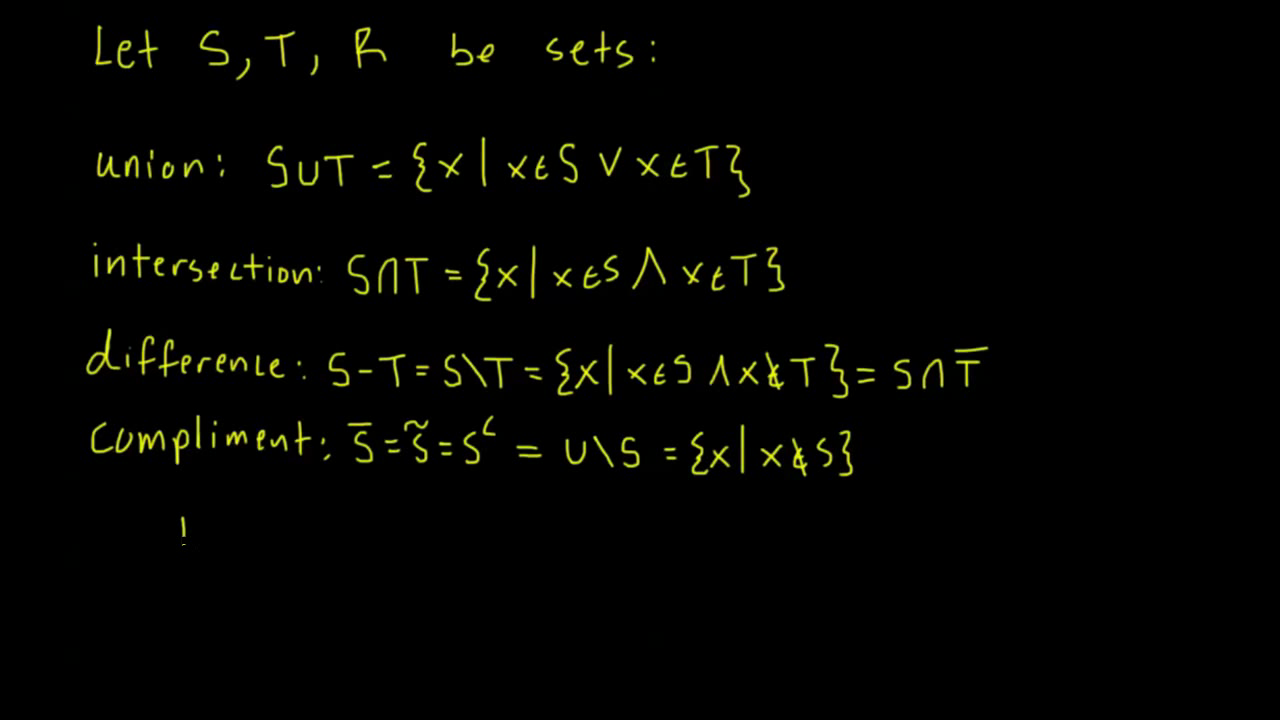 Let S, T, R be sets:
union: S∪T = {x | x∈S ∨ x∈T}
intersection: S∩T = {x | x∈S ∧ x∈T}
difference: S-T = S\T = {x | x∈S ∧ x∉T} = S∩T̅
Compliment: S̅ = S̃ = Sᶜ = U\S = {x | x∉S}